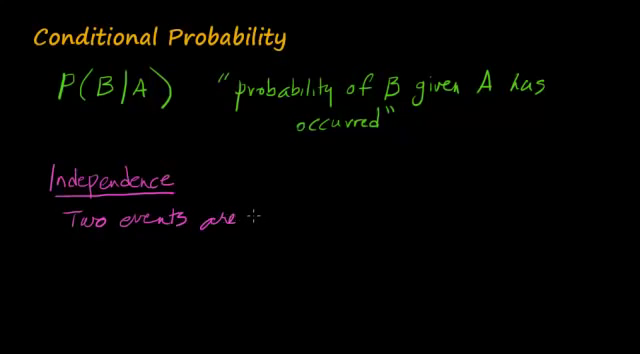 Conditional Probability
P(B|A) "probability of B given A has
occurred"
Independence
Two events are